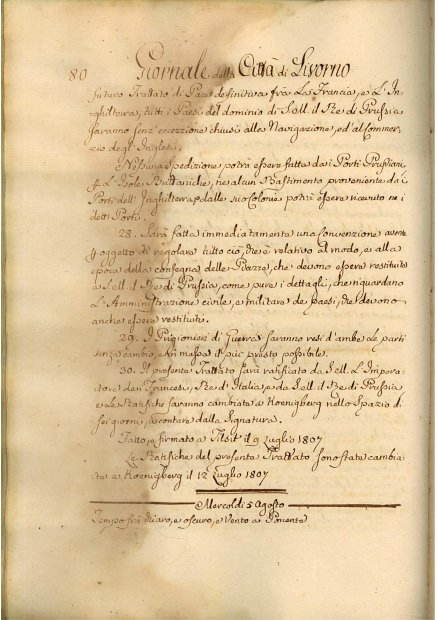 80 Giornale della Città di Livorno
futuro Trattato di Pace definitiva frà La Francia, e L'In-
ghilterra, tutti i Paesi del dominio di S. il Re di Prussia
saranno senz'eccezzione chiusi alla Navigazione, ed al Commer-
cio degl'Inglesi.
Nessuna Spedizione potrà essere fatta dai Porti Prussiani
L'Isole Brittaniche, ne alcun Bastimento proveniente dai
Porti dell'Inghilterra, dalle sue Colonie potrà essere ricevuto ne i
detti Porti.
28. Sarà fatta immediatamente una Convenzione avente
oggetto di regolare tutto ciò, che è relativo al modo, e alla
epoca della consegna delle Piazze, che devono essere restituite
a il Re di Prussia, come pure i dettagli, che riguardano
L'Amministrazione civile, e militare de paesi, che devono
anche essere restituiti.
29. I Prigionieri di Guerra saranno resi d'ambe Le parti
senza cambio, e in massa il più presto possibile.
30. Il presente Trattato sarà ratificato da L'Impera-
tore de Francesi, Re di Italia, e da il Re di Prussia
e Le Ratifiche saranno cambiate a Koenigberg nello Spazio di
sei giorni, a contare dalla Signatura.
Fatto, e firmato a Tilsit il 9 Luglio 1807
Le Ratifiche del presente Trattato sono state cambia-
te a Koenigberg il 12 Luglio 1807
Mercoldi 5 Agosto
Tempo frà chiaro, e oscuro, e Vento a Ponente